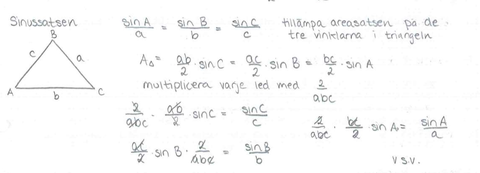 Sinussatsen
B
c a
A b C
sin A / a = sin B / b = sin C / c tillämpa areasatsen på de
tre vinklarna i triangeln
A△ = ab/2 · sin C = ac/2 · sin B = bc/2 · sin A
multiplicera varje led med 2/abc
2/abc · ab/2 · sin C = sin C / c
2/abc · bc/2 · sin A = sin A / a
ac/2 sin B · 2/abc = sin B / b
v.s.v.